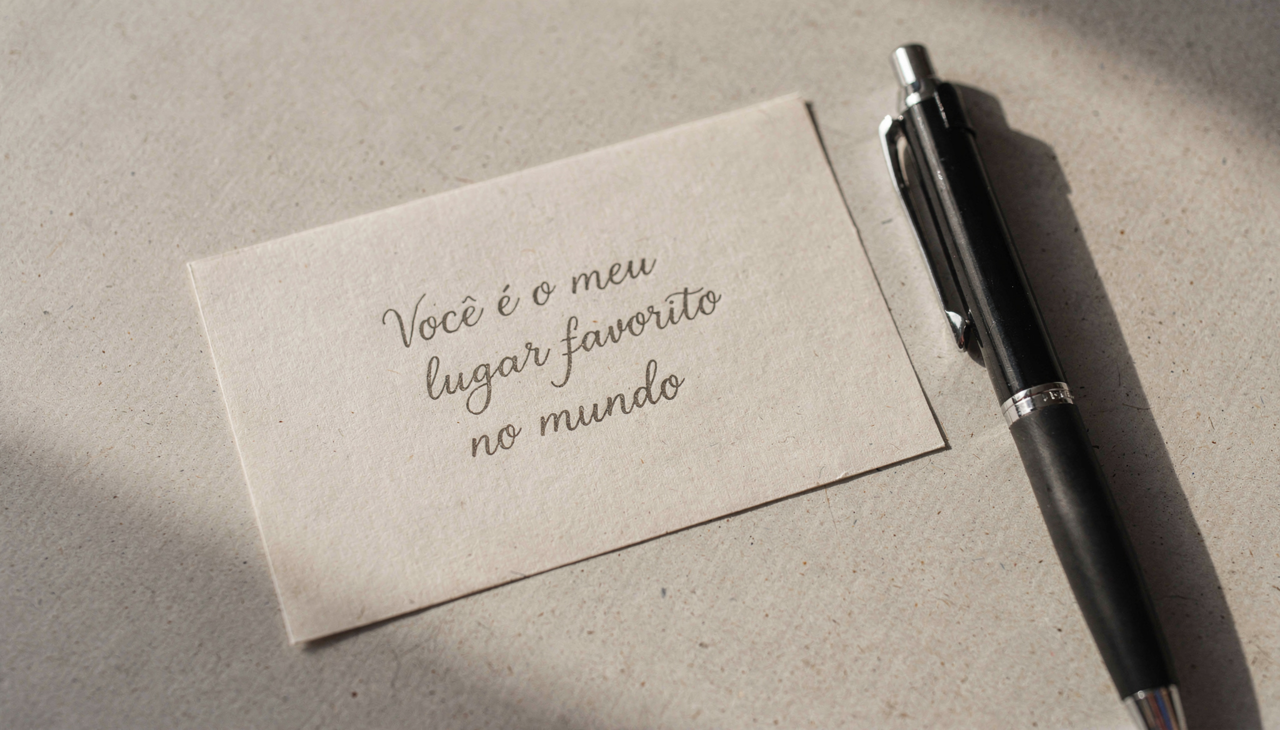 Você é o meu
lugar favorito
no mundo